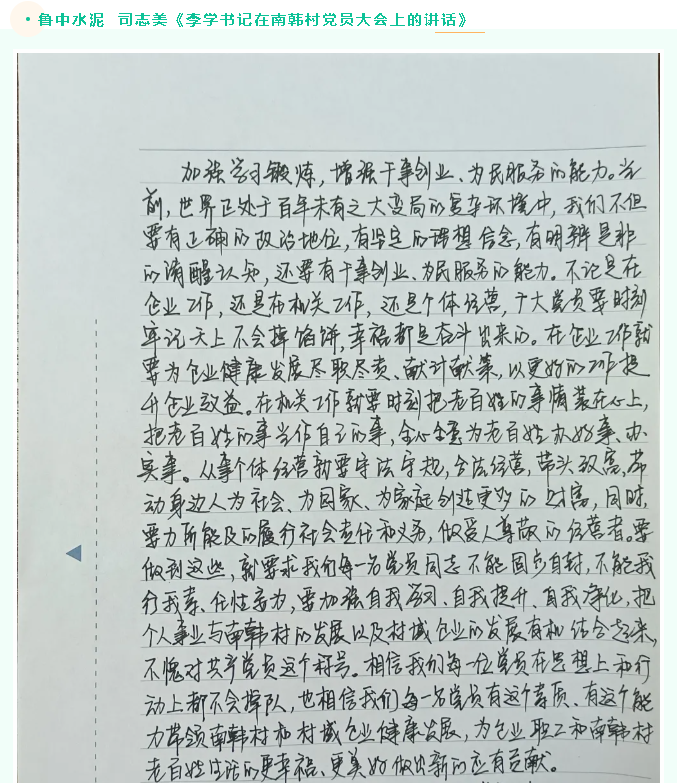 · 鲁中水泥 司志美《李学书记在南韩村党员大会上的讲话》
加强学习锻炼，增强干事创业、为民服务的能力。当
前，世界正处于百年未有之大变局的复杂环境中，我们不但
要有正确的政治地位，有坚定的理想信念，有明辨是非
的清醒认知，还要有干事创业、为民服务的能力。不论是在
企业工作，还是在机关工作，还是个体经营，广大党员要时刻
牢记天上不会掉馅饼，幸福都是奋斗出来的。在企业工作就
要为企业健康发展尽职尽责、献计献策，以更好的工作提
升企业效益。在机关工作就要时刻把老百姓的事情装在心上，
把老百姓的事当作自己的事，全心全意为老百姓办好事、办
实事。从事个体经营就要守法守规，合法经营，带头致富，带
动身边人为社会、为国家、为家庭创造更多的财富，同时，
要力所能及的履行社会责任和义务，做受人尊敬的经营者。要
做到这些，就要求我们每一名党员同志不能固步自封，不能我
行我素、任性妄为，要加强自我学习、自我提升、自我净化，把
个人事业与南韩村的发展以及村域企业的发展有机结合起来，
不愧对共产党员这个称号。相信我们每一位党员在思想上和行
动上都不会掉队，也相信我们每一名党员有这个素质、有这个能
力带领南韩村和村域企业健康发展，为企业职工和南韩村
老百姓生活的更幸福、更美好做出新的应有贡献。